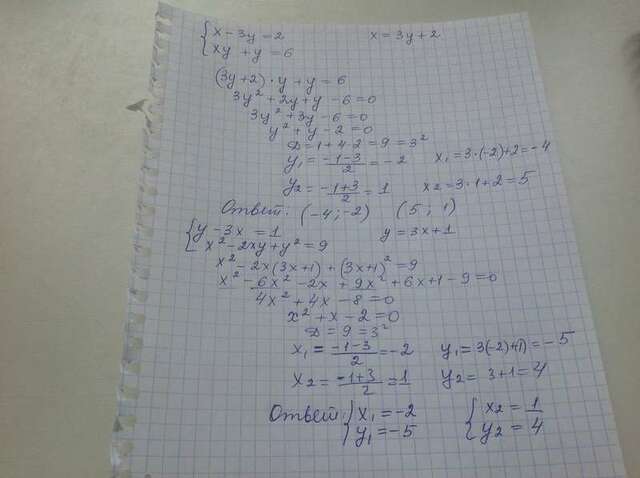 { x - 3y = 2 x = 3y + 2
{ xy + y = 6
(3y+2)·y + y = 6
3y² + 2y + y - 6 = 0
3y² + 3y - 6 = 0
y² + y - 2 = 0
D = 1 + 4·2 = 9 = 3²
y₁ = (-1-3)/2 = -2 x₁ = 3·(-2)+2 = -4
y₂ = (-1+3)/2 = 1 x₂ = 3·1+2 = 5
Ответ: (-4; -2) (5; 1)
{ y - 3x = 1 y = 3x + 1
{ x² - 2xy + y² = 9
x² - 2x(3x+1) + (3x+1)² = 9
x² - 6x² - 2x + 9x² + 6x + 1 - 9 = 0
4x² + 4x - 8 = 0
x² + x - 2 = 0
D = 9 = 3²
x₁ = (-1-3)/2 = -2 y₁ = 3(-2)+1 = -5
x₂ = (-1+3)/2 = 1 y₂ = 3+1 = 4
Ответ: { x₁ = -2 { x₂ = 1
{ y₁ = -5 { y₂ = 4